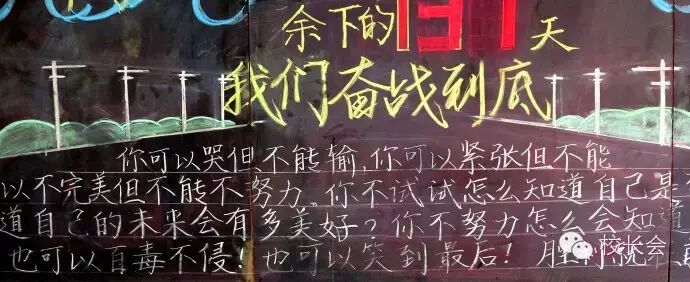 余下的137天
我们奋战到底
你可以哭但不能输,你可以紧张但不能
以不完美但不能不努力。你不试试怎么知道自己是
道自己的未来会有多美好?你不努力怎么会知道
也可以百毒不侵!也可以笑到最后!胜利就
校长会